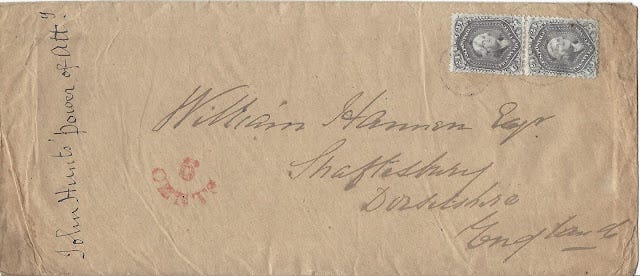 John Hunts' Power of Atty
William Hannen Esqr
Shaftesbury
Dorsetshire
England
CENTS